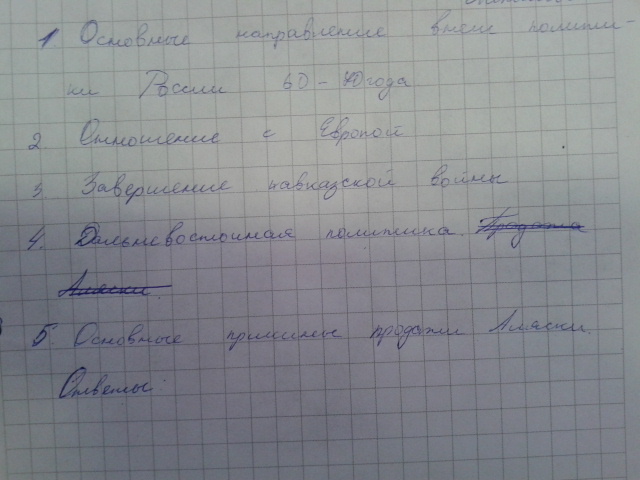 1 Основные направление внеш полити-
ки России 60-70года
2. Отношение с Европой
3. Завершение кавказской войны
4. Дальневосточная политика. Продажа
Аляски.
5. Основные причины продажи Аляски.
Ответы: